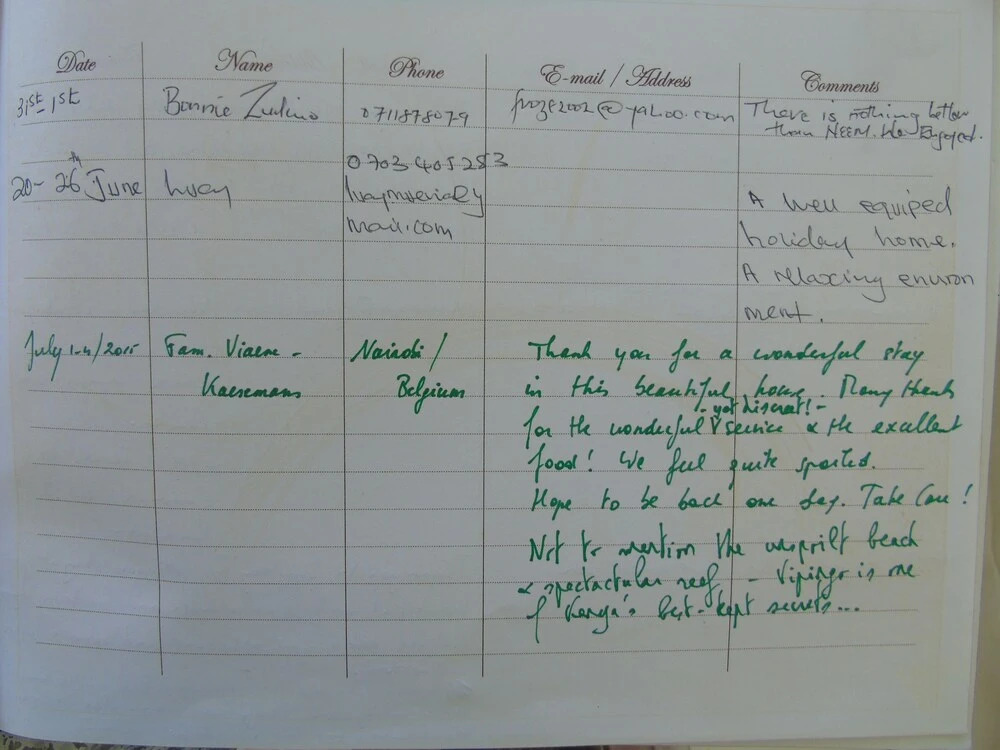 Date Name Phone E-mail / Address Comments
31st 1st Bonnie 0711878079 froze2002@yahoo.com There is nothing better
than NEEM. We Enjoyed.
0703405283
20-26th June Lucy
mail.com
A well equiped
holiday home.
A relaxing environ
ment.
July 1-4/2015 Fam. Viaene - Nairobi / Thank you for a wonderful stay
Kaesemans Belgium in this beautiful house. Many thanks
- yet discreet! -
for the wonderful V service & the excellent
food! We feel quite spoiled.
Hope to be back one day. Take Care!
Not to mention the unspoilt beach
& spectacular reef - Vipingo is one
of Kenya's best-kept secrets...